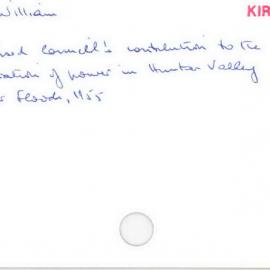 William KIR
Council's contribution to the
ation of power in Hunter Valley
Floods, 1955